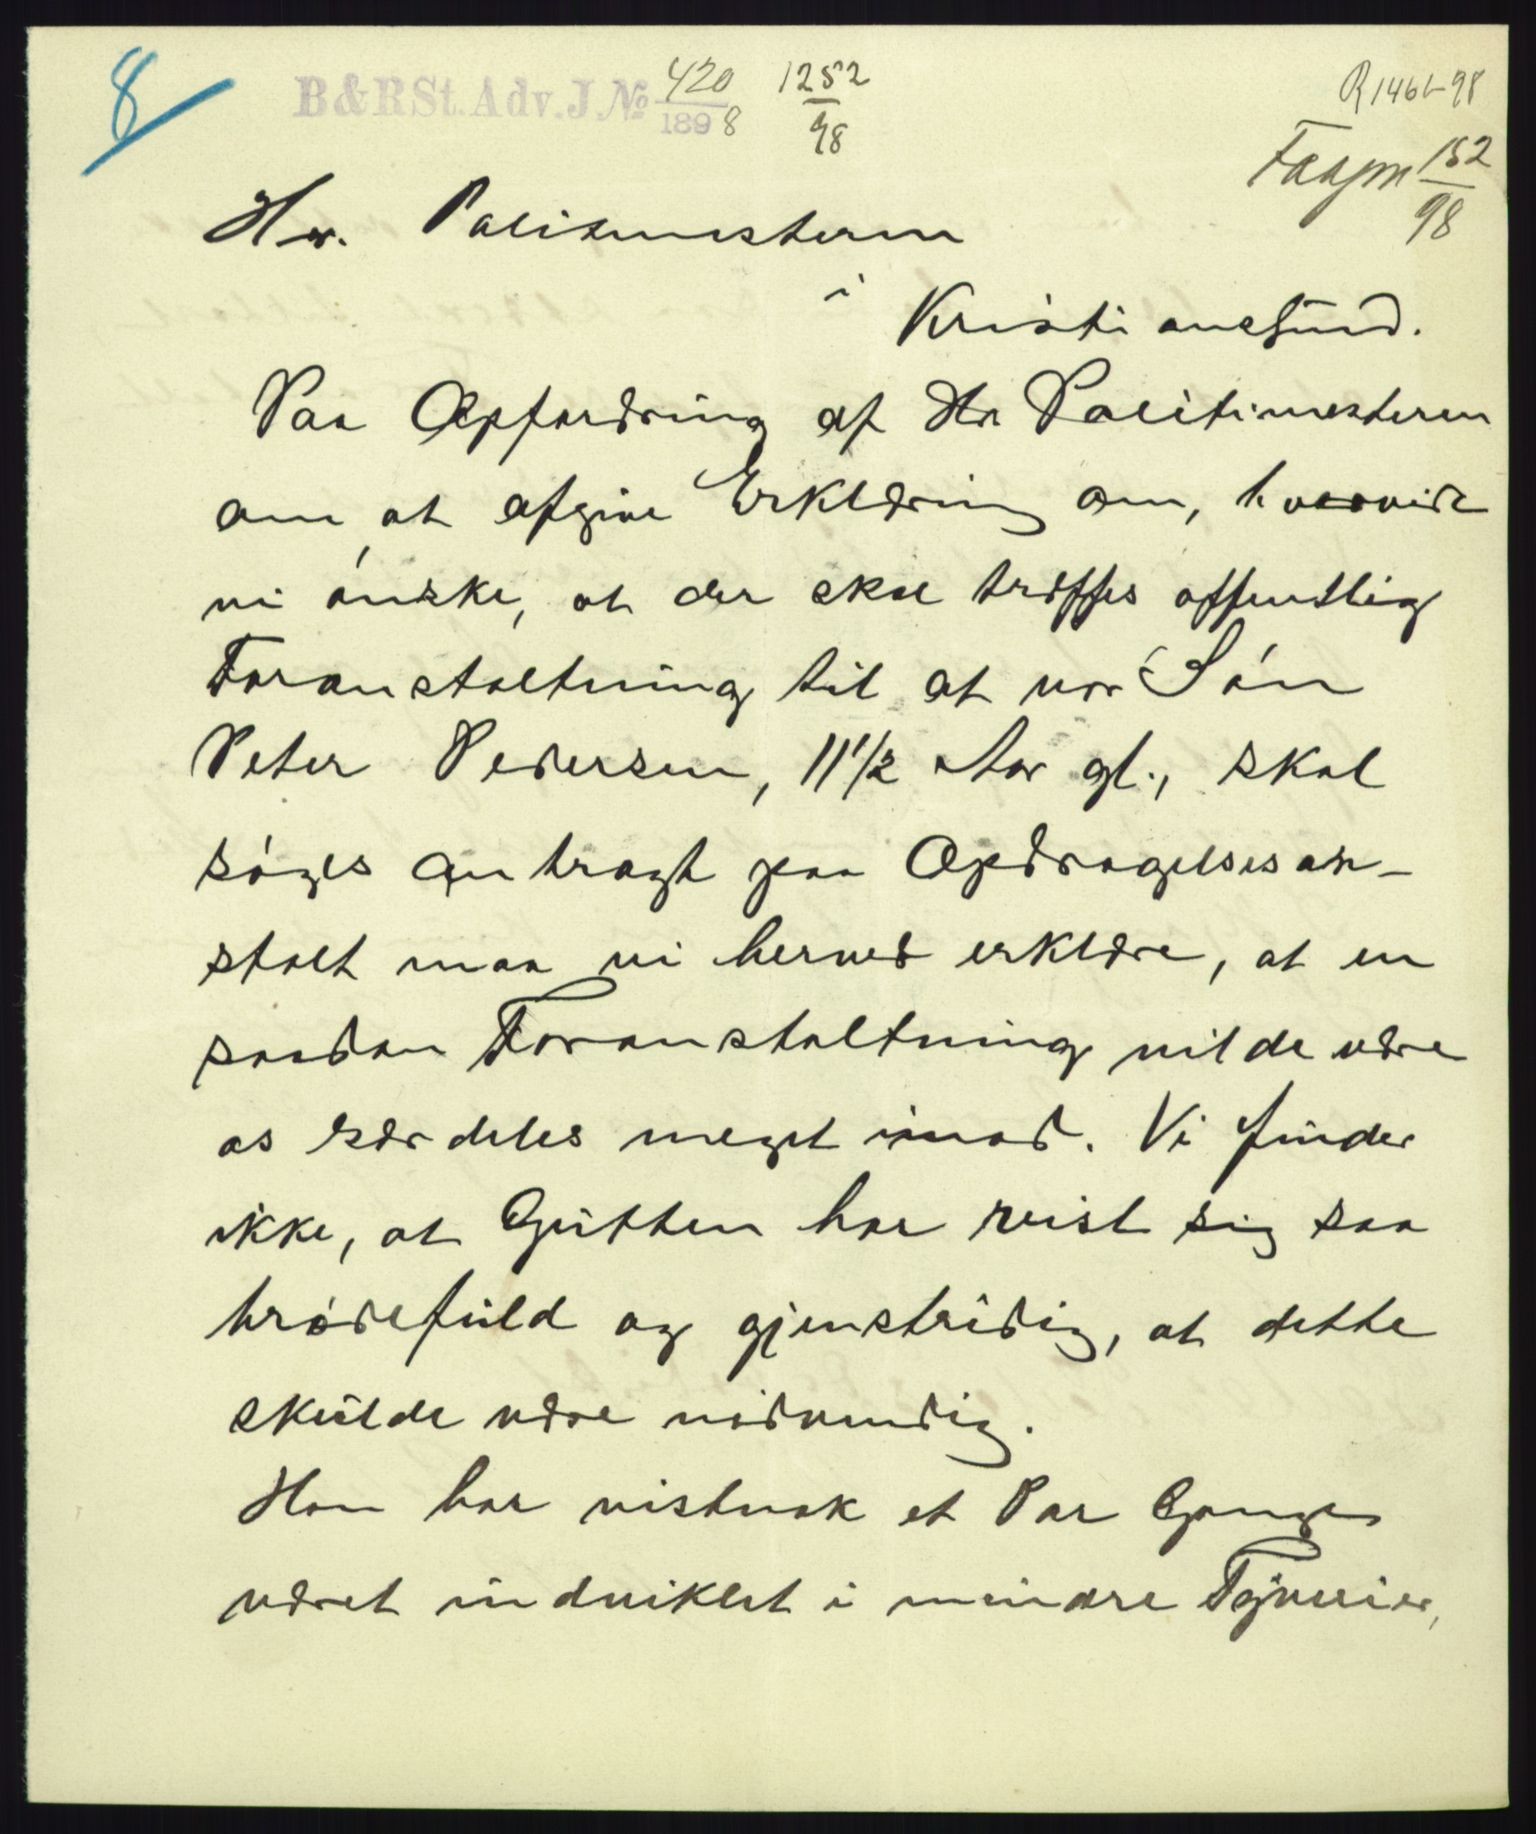 8
B&RSt.Adv.J.№ 420/1898 1252/98
R1461-98
152/98
Hr. Politimesteren
i
Kristiansund.
Paa Opfordring af Hr Politimesteren
om at afgive Erklæring om, hvorvidt
vi ønske, at der skal træffes offentlig
Foranstaltning til at vor Søn
Peter Pedersen, 11½ Aar gl., skal
søges anbragt paa Opdragelsesan-
stalt maa vi herved erklære, at en
saadan Foranstaltning vilde være
os særdeles meget imod. Vi finder
ikke, at Gutten har vist sig saa
brødefuld og gjenstridig, at dette
skulde være nødvendig.
Han har vistnok et Par Gange
været indviklet i mindre Tyverier,